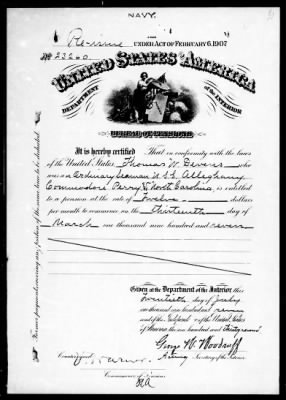 NAVY.
Re-issue UNDER ACT OF FEBRUARY 6, 1907
No 23260
UNITED STATES of AMERICA
DEPARTMENT of the INTERIOR
BUREAU OF PENSIONS
It is hereby certified That in conformity with the laws
of the United States Thomas W. Bevers who
was an Ordinary Seaman U.S.S. Alleghany,
Commodore Perry & North Carolina, is entitled
to a pension at the rate of twelve dollars
per month to commence on the thirteenth day of
March one thousand nine hundred and seven
Given at the Department of the Interior this
twentieth day of
one thousand nine hundred and seven
and of the Independence of the United States
of America the one hundred and thirty second
Geo. W. Woodruff
Acting Secretary of the Interior.
Countersigned
V. Warner
Commissioner of Pensions
Former payments covering any portion of the same time to be deducted.